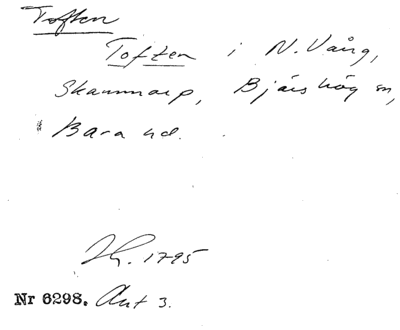 Toften
Toften i N. Vång,
Skammarp, Bjärshög sn,
Bara hd.
1795
Nr 6298. Akt 3.